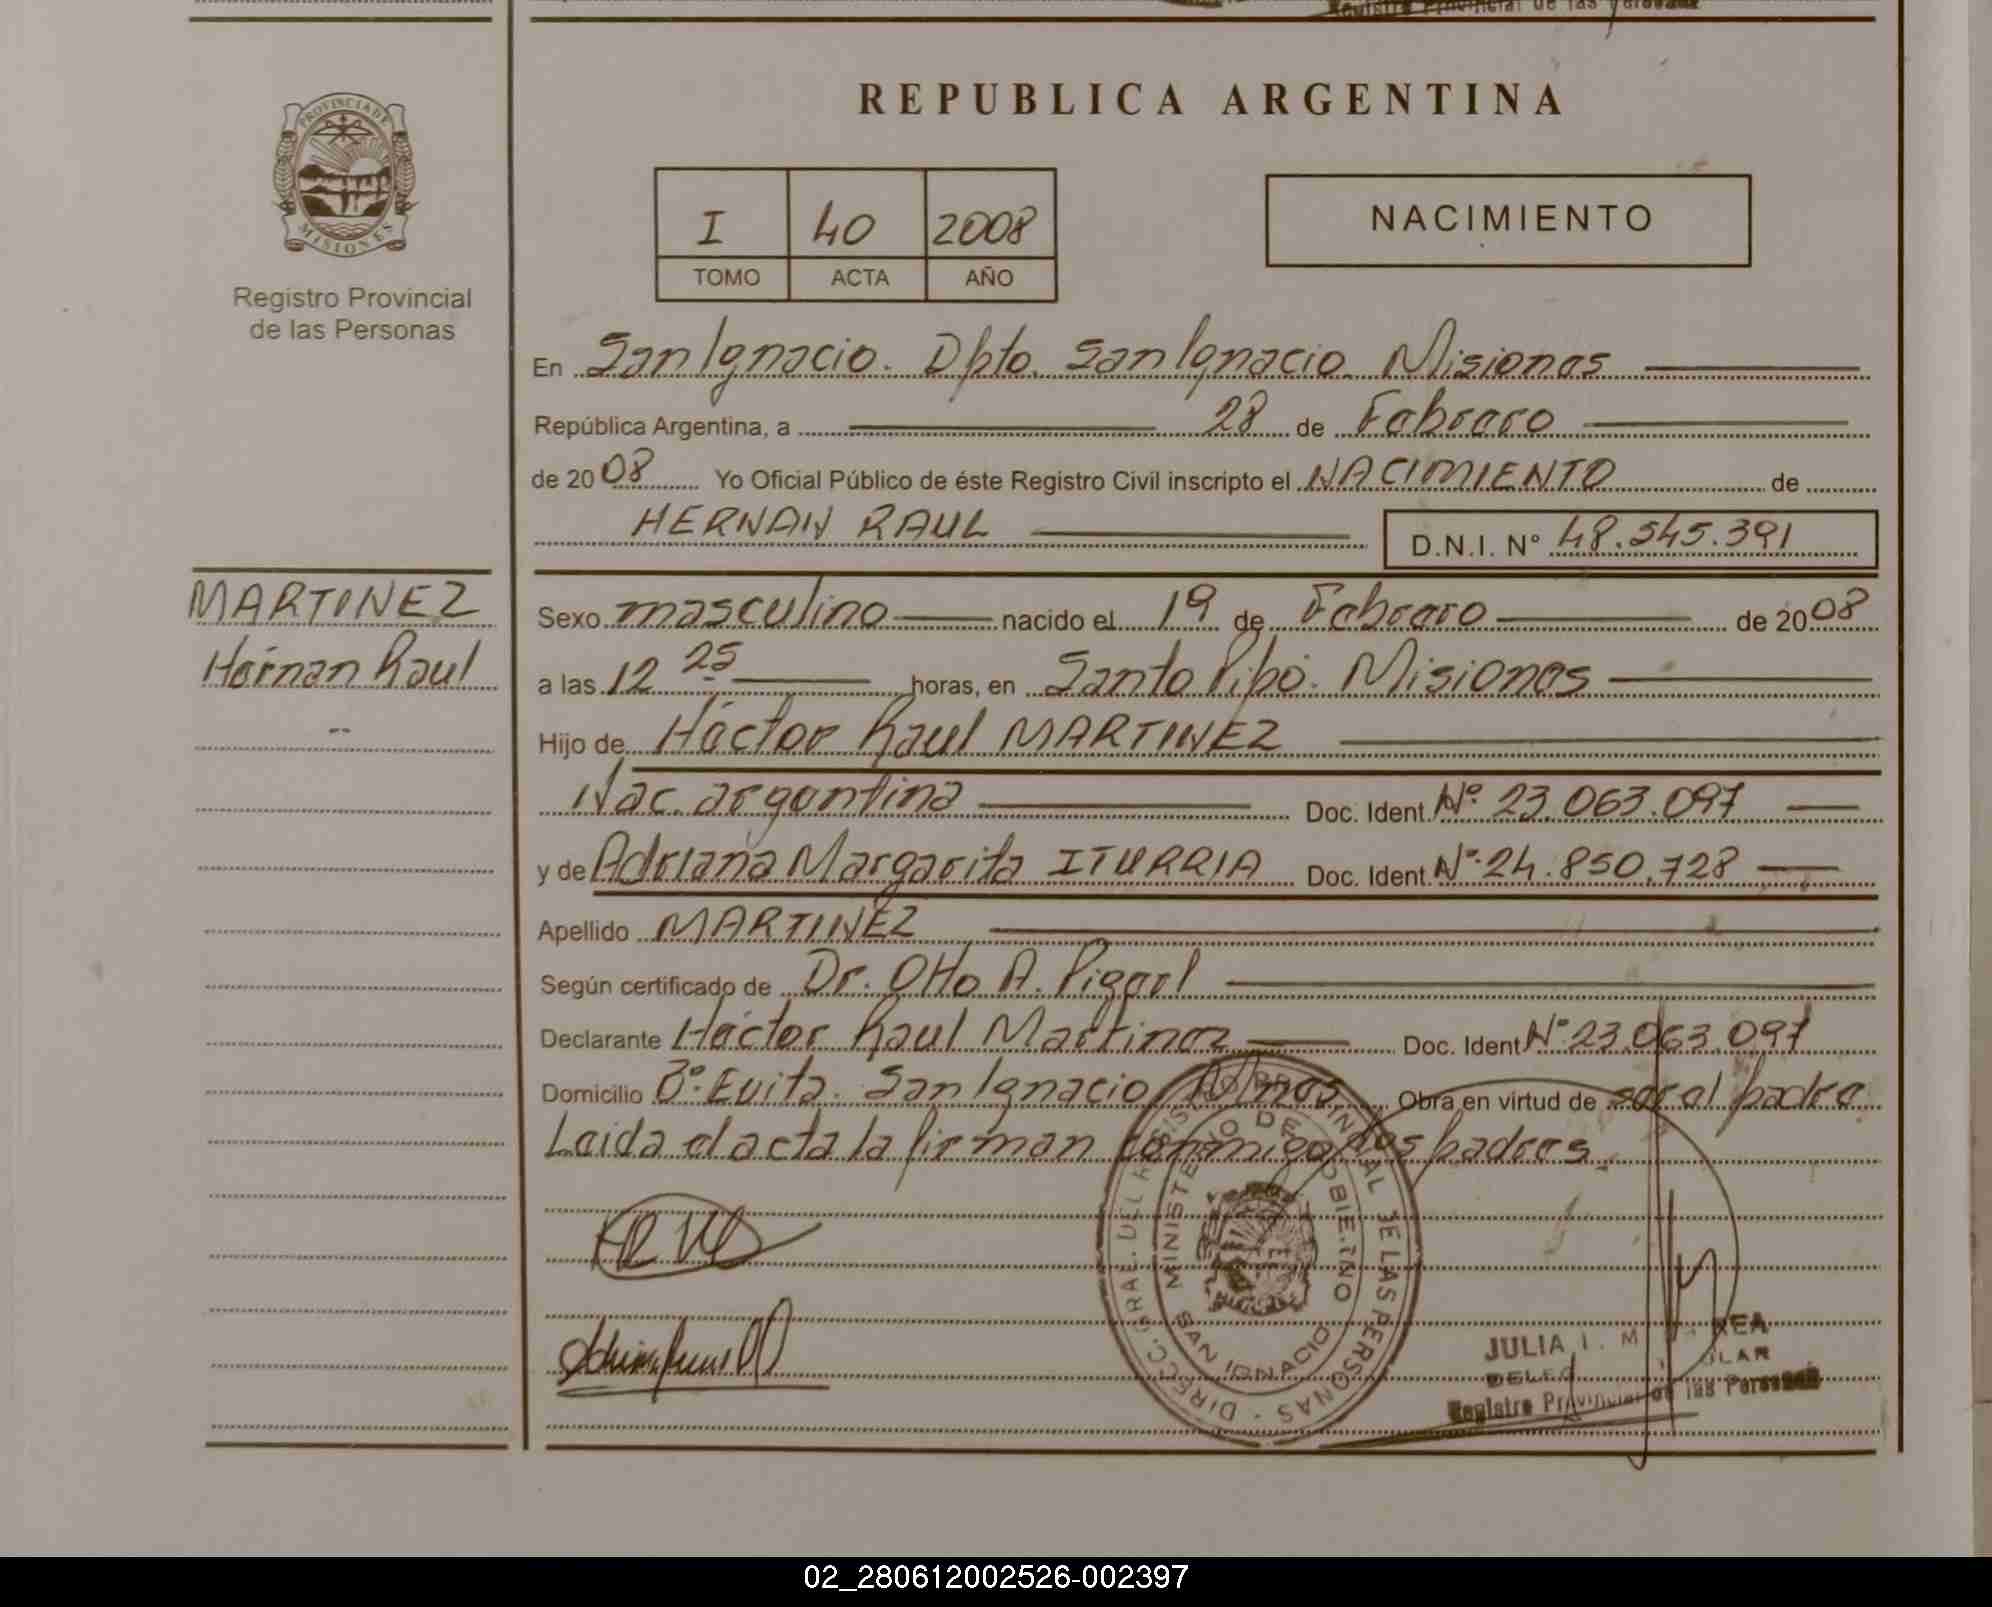 Registro Provincial de las Personas
REPUBLICA ARGENTINA
PROVINCIA DE MISIONES
Registro Provincial
de las Personas
I 40 2008
TOMO ACTA AÑO
NACIMIENTO
En San Ignacio. Dpto. San Ignacio. Misiones
República Argentina, a 28 de Febrero
de 20 08 Yo Oficial Público de éste Registro Civil inscripto el NACIMIENTO de
HERNAN RAUL D.N.I. N° 48.545.391
MARTINEZ
Hernan Raul
Sexo masculino nacido el 19 de Febrero de 20 08
a las 12 25 horas, en Santo Pipó. Misiones
Hijo de Héctor Raul MARTINEZ
Nac. argentina Doc. Ident. N° 23.063.097
y de Adriana Margarita ITURRIA Doc. Ident. N° 24.850.728
Apellido MARTINEZ
Según certificado de Dr. Otto A.
Declarante Héctor Raul Martinez Doc. Ident N° 23.063.097
Domicilio B° Evita. San Ignacio Mnes. Obra en virtud de ser el padre
Leida el acta la firman conmigo los padres.
DIRECC. GRAL. DEL REGISTRO PROVINCIAL DE LAS PERSONAS
MINISTERIO DE GOBIERNO
SAN IGNACIO
JULIA I.
Registro Provincial de las Personas
02_280612002526-002397